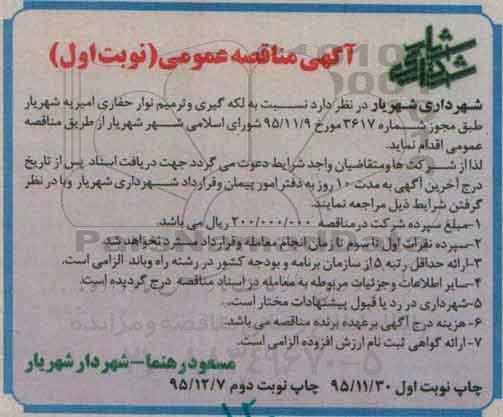 شهرداری شهریار
آگهی مناقصه عمومی (نوبت اول)
شهرداری شهریار در نظر دارد نسبت به لکه گیری و ترمیم نوار حفاری امیریه شهریار
طبق مجوز شماره ۳۶۱۷ مورخ ۹۵/۱۱/۹ شورای اسلامی شهر شهریار از طریق مناقصه
عمومی اقدام نماید.
لذا از شرکت ها و متقاضیان واجد شرایط دعوت می گردد جهت دریافت اسناد پس از تاریخ
درج آخرین آگهی به مدت ۱۰ روز به دفتر امور پیمان و قرارداد شهرداری شهریار و با در نظر
گرفتن شرایط ذیل مراجعه نمایند.
۱-مبلغ سپرده شرکت در مناقصه ۲۰۰/۰۰۰/۰۰۰ ریال می باشد.
۲-سپرده نفرات اول تا سوم تا زمان انجام معامله و قرارداد مسترد نخواهد شد.
۳-ارائه حداقل رتبه ۵ از سازمان برنامه و بودجه کشور در رشته راه و باند الزامی است.
۴-سایر اطلاعات و جزئیات مربوطه به معامله در اسناد مناقصه درج گردیده است.
۵-شهرداری در رد یا قبول پیشنهادات مختار است.
۶-هزینه درج آگهی برعهده برنده مناقصه می باشد.
۷-ارائه گواهی ثبت نام ارزش افزوده الزامی است.
مسعود رهنما-شهردار شهریار
چاپ نوبت اول ۹۵/۱۱/۳۰ چاپ نوبت دوم ۹۵/۱۲/۷